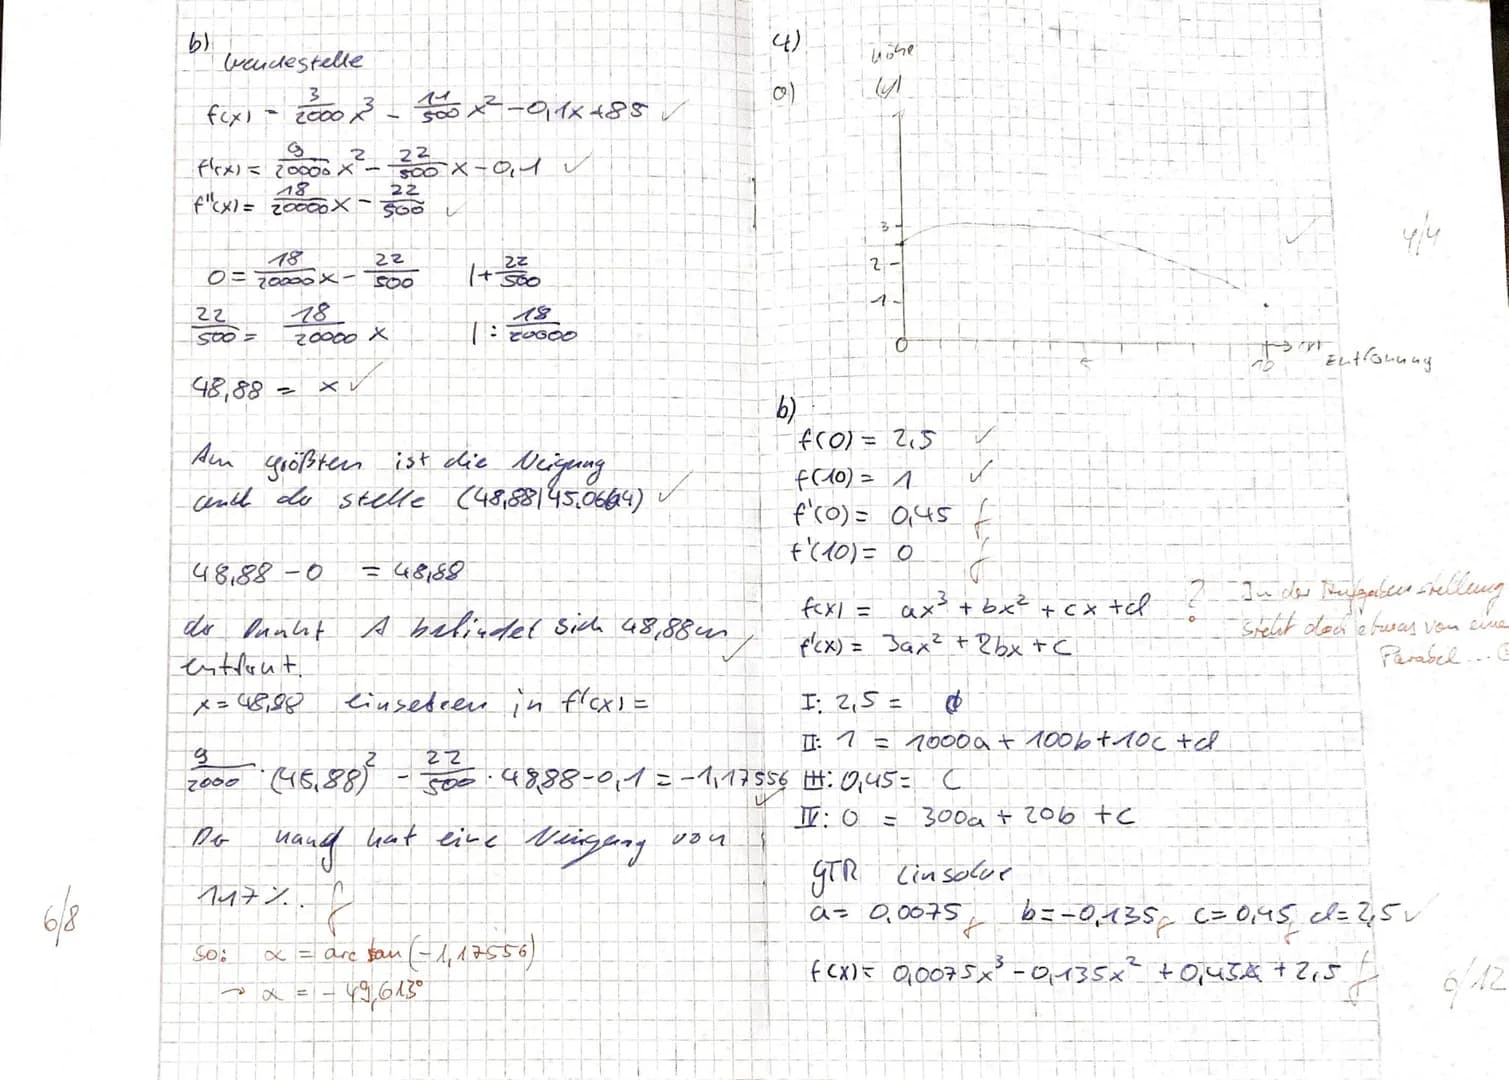 b)
Wendestelle
f(x) = 3/2000 x³ - 11/500 x² - 0,1x + 85 ✓
f'(x) = 9/20000 x² - 22/500 x - 0,1 ✓
f''(x) = 18/20000 x - 22/500 ✓
0 = 18/20000 x - 22/500 | + 22/500
22/500 = 18/20000 x | : 18/20000
48,88 = x ✓
Am größten ist die Neigung
and der stelle (48,88|45.0664) ✓
48,88 - 0 = 48,88
der Punkt A befindet sich 48,88m
entfernt. ✓
x = 48,88 einsetzen in f'(x) =
9/2000 · (48,88)² - 22/500 · 48,88 - 0,1 = -1,17556 ✓
Der hang hat eine Neigung von
117%. f
6/8
so: α = arc tan (-1,17556)
→ α = -49,613°
4)
a)
Höhe
(y)
3
2
1
0
5
10
(x)
Entfernung
✓
4/4
b)
f(0) = 2,5 ✓
f(10) = 1 ✓
f'(0) = 0,45 f
f'(10) = 0 f
f(x) = ax³ + bx² + cx + d
f'(x) = 3ax² + 2bx + c
? In der Aufgabenstellung
steht doch etwas von einer
Parabel...
I: 2,5 = d
II: 1 = 1000a + 100b + 10c + d
III: 0,45 = c
IV: 0 = 300a + 20b + c
GTR Linsolve
a = 0,0075 f b = -0,135 f c = 0,45 f d = 2,5 ✓
f(x) = 0,0075x³ - 0,135x² + 0,45x + 2,5 f
6/12